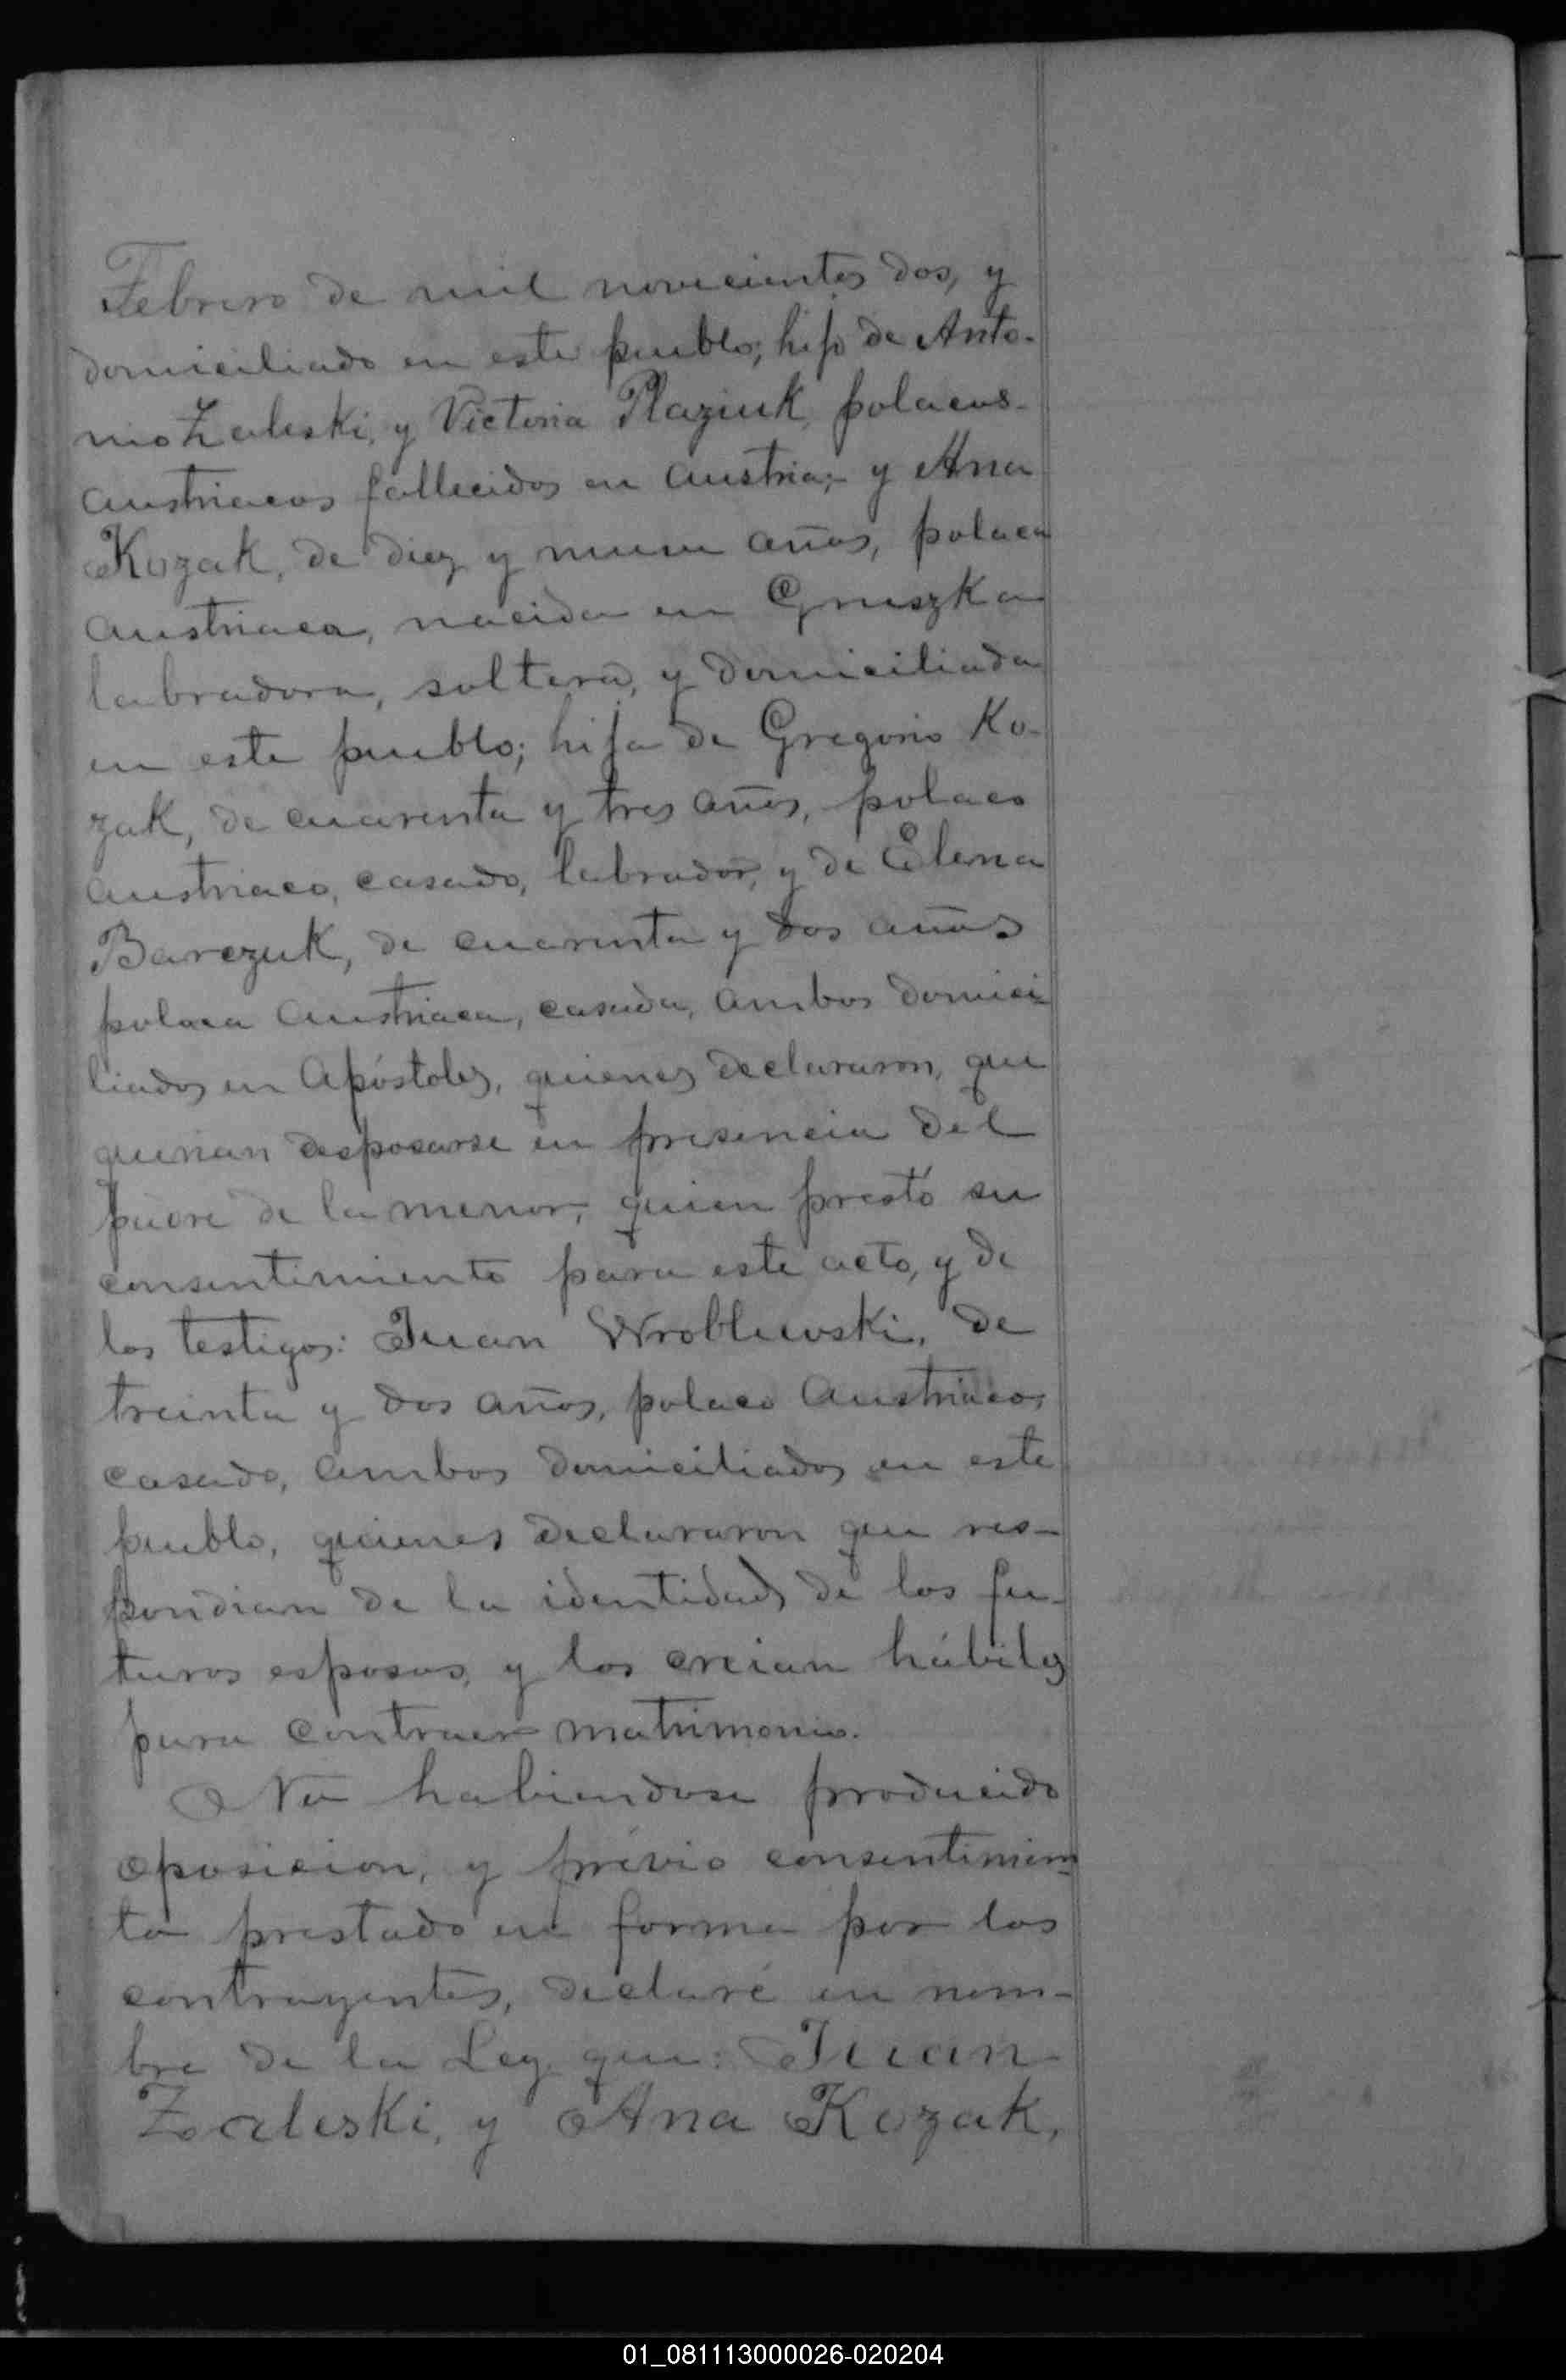 Febrero de mil novecientos dos, y
domiciliado en este pueblo; hijo de Anto-
nio Zaleski, y Victoria Plaziuk, polacos-
austriacos fallecidos en Austria; y Ana
Kozak, de diez y nueve años, polaca
austriaca, nacida en Gruszka
labradora, soltera, y domiciliada
en este pueblo; hija de Gregorio Ko-
zak, de cuarenta y tres años, polaco
austriaco, casado, labrador, y de Elena
Barczuk, de cuarenta y dos años
polaca austriaca, casada, ambos domici-
liados en Apóstoles, quienes declararon, que
querian desposarse en presencia del
padre de la menor, quien prestó su
consentimiento para este acto, y de
los testigos: Juan Wroblewski, de
treinta y dos años, polaco austriaco,
casado, ambos domiciliados en este
pueblo, quienes declararon que res-
pondian de la identidad de los fu-
turos esposos, y los creian hábiles
para contraer matrimonio.
No habiendose producido
oposicion, y prévio consentimien-
to prestado en forma por los
contrayentes, declaré en nom-
bre de la Ley que: Juan
Zaleski, y Ana Kozak,
01_081113000026-020204